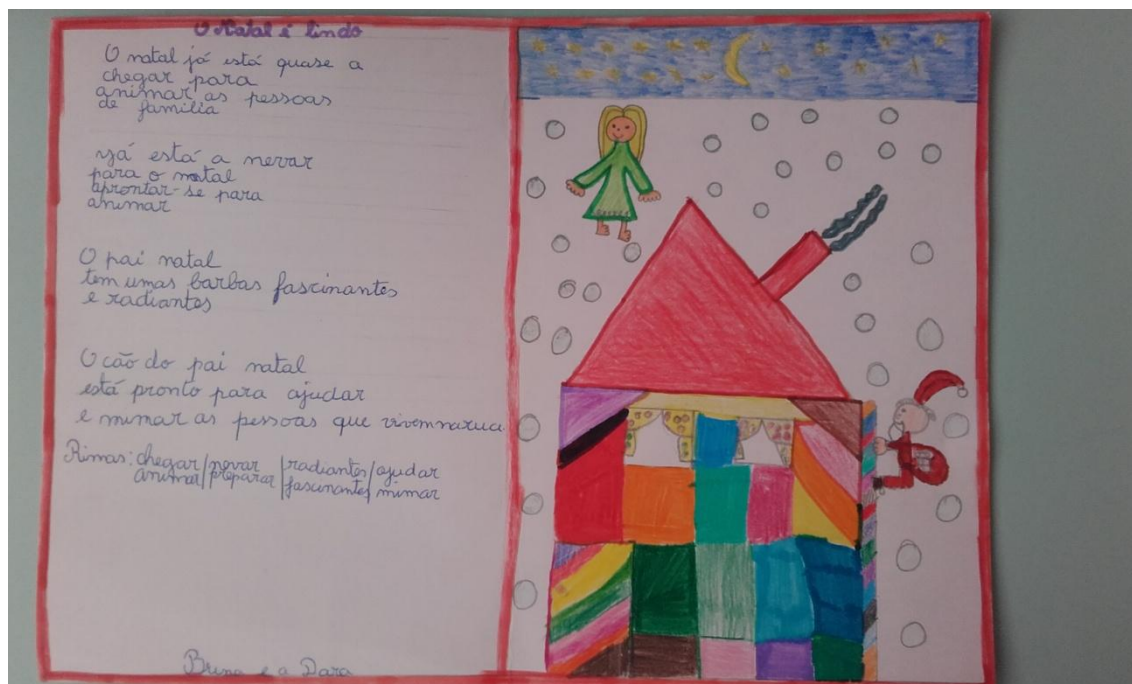 O Natal é lindo
O natal já está quase a
chegar para
animar as pessoas
de família
yá está a nevar
para o natal
aprontar-se para
animar
O pai natal
tem umas barbas fascinantes
e radiantes
O cão do pai natal
está pronto para ajudar
e mimar as pessoas que vivem na rua
Rimas: chegar/nevar |radiantes/ajudar
animar/preparar |fascinantes/mimar
Bruna e a Dara